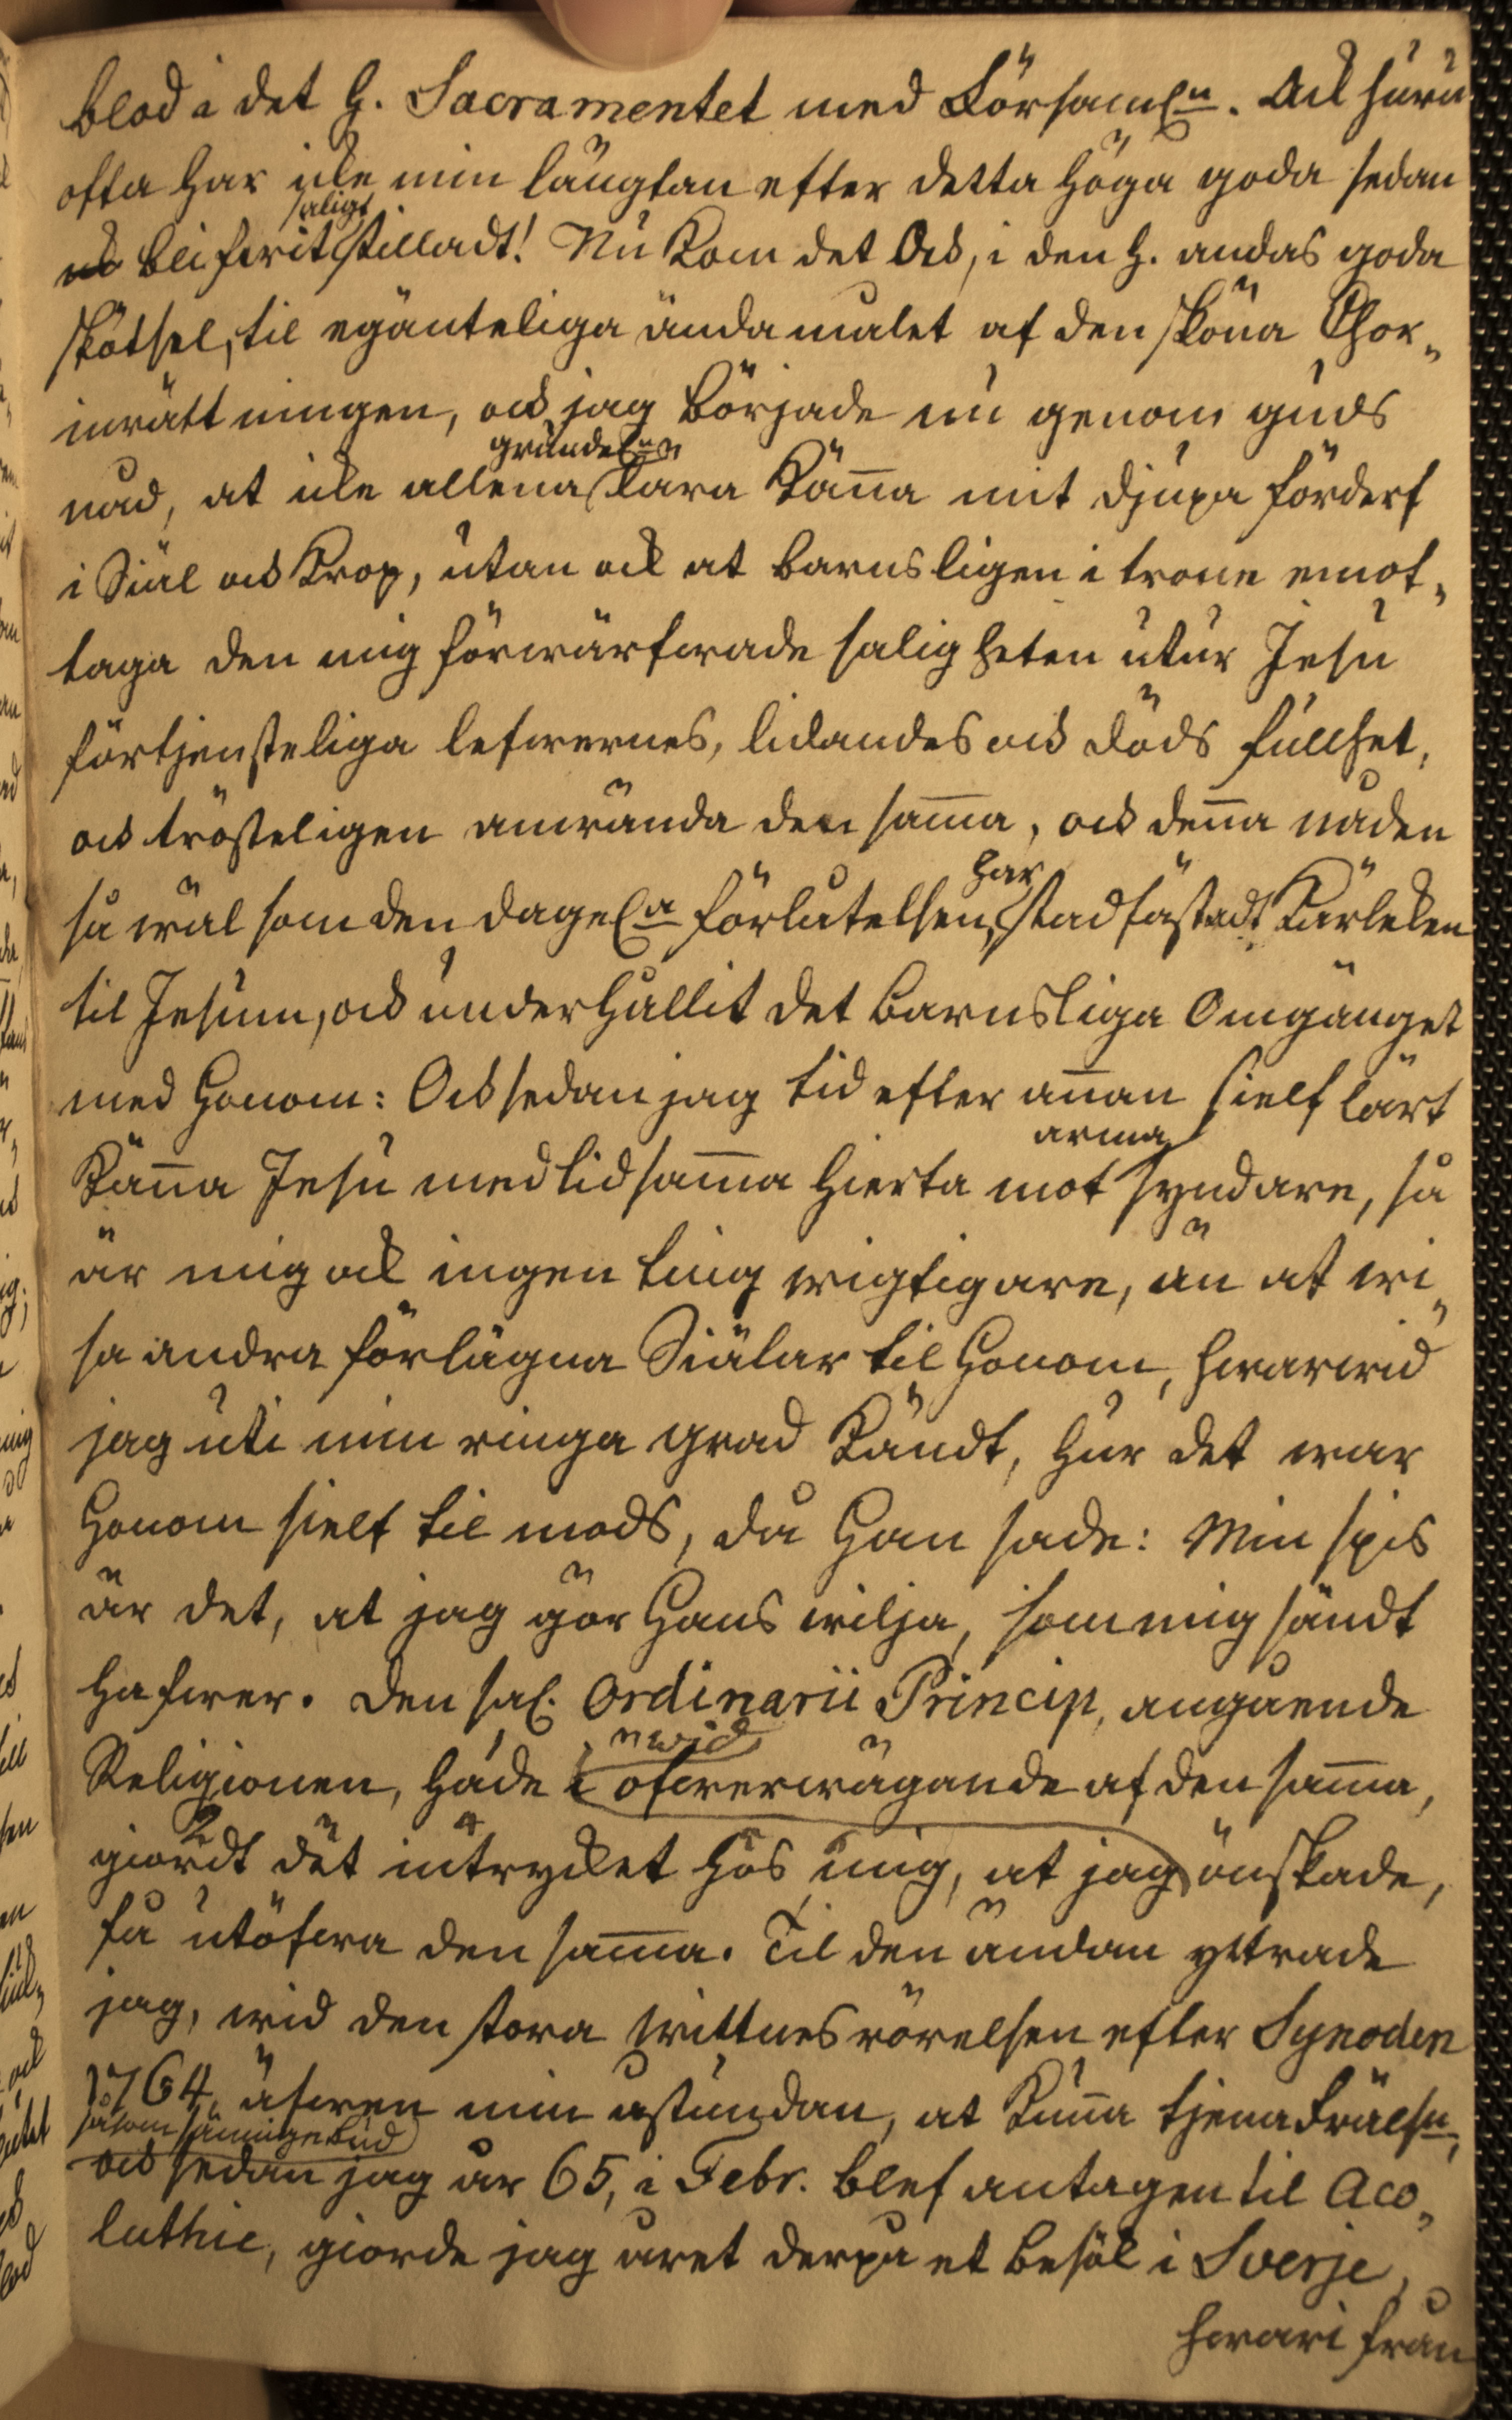 blod i det H. Sacramentet med Församl<u>n</u>. Ack huru
ofta har icke min längtan efter detta höga goda sedan
saligt
blifwit stilladt! Nu kom det ock, i den H. andas goda
skötsel, til egänteliga ändamålet af den sköna Chor„
inrättningen, ock jag började nu genom guds
grundel.n
nåd, at icke allenast lära känna mit djupa förderf
i Siäl ock Krop, utan ock at barnsligen i trone emot„
taga den mig förwärfwade saligheten utur Jesu
förtjensteliga lefwernes, lidandes ock döds fullhet,
ock trösteligen anwända den samma, ock denna nåden
har
så wäl som den dagel.a förlåtelsen, stadfästadt Kärleken
til Jesum, ock underhållit det barnsliga Omgänget
med Honom: Ock sedan jag tid efter annan sielf lärt
arma
känna Jesu medlidsamma hierta mot syndare, så
är mig ock ingen ting wigtigare, än at wi„
sa andra förlägna Siälar til Honom, hwarwid
jag uti min ringa grad kändt, hur det war
Honom sielf til mods, då Han sade: Min spis
är det, at jag gör Hans wilja, som mig sändt
hafwer. Den sal. Ordinarii Princip, angående
wid
Religionen, hade öfwerwägande af den samma,
giordt det intrycket hos mig, at jag önskade,
få utöfwa den samma. Til den ändan yttrade
jag, wid den stora wittnesrörelsen efter Synoden
1764, äfwen min åstundan, at kunna tjena Frälsn,
såsom sänningebud
ock sedan jag år 65, i Febr. blef antagen til Aco„
luthie, giorde jag året derpå et besök i Sverje,
hwari från